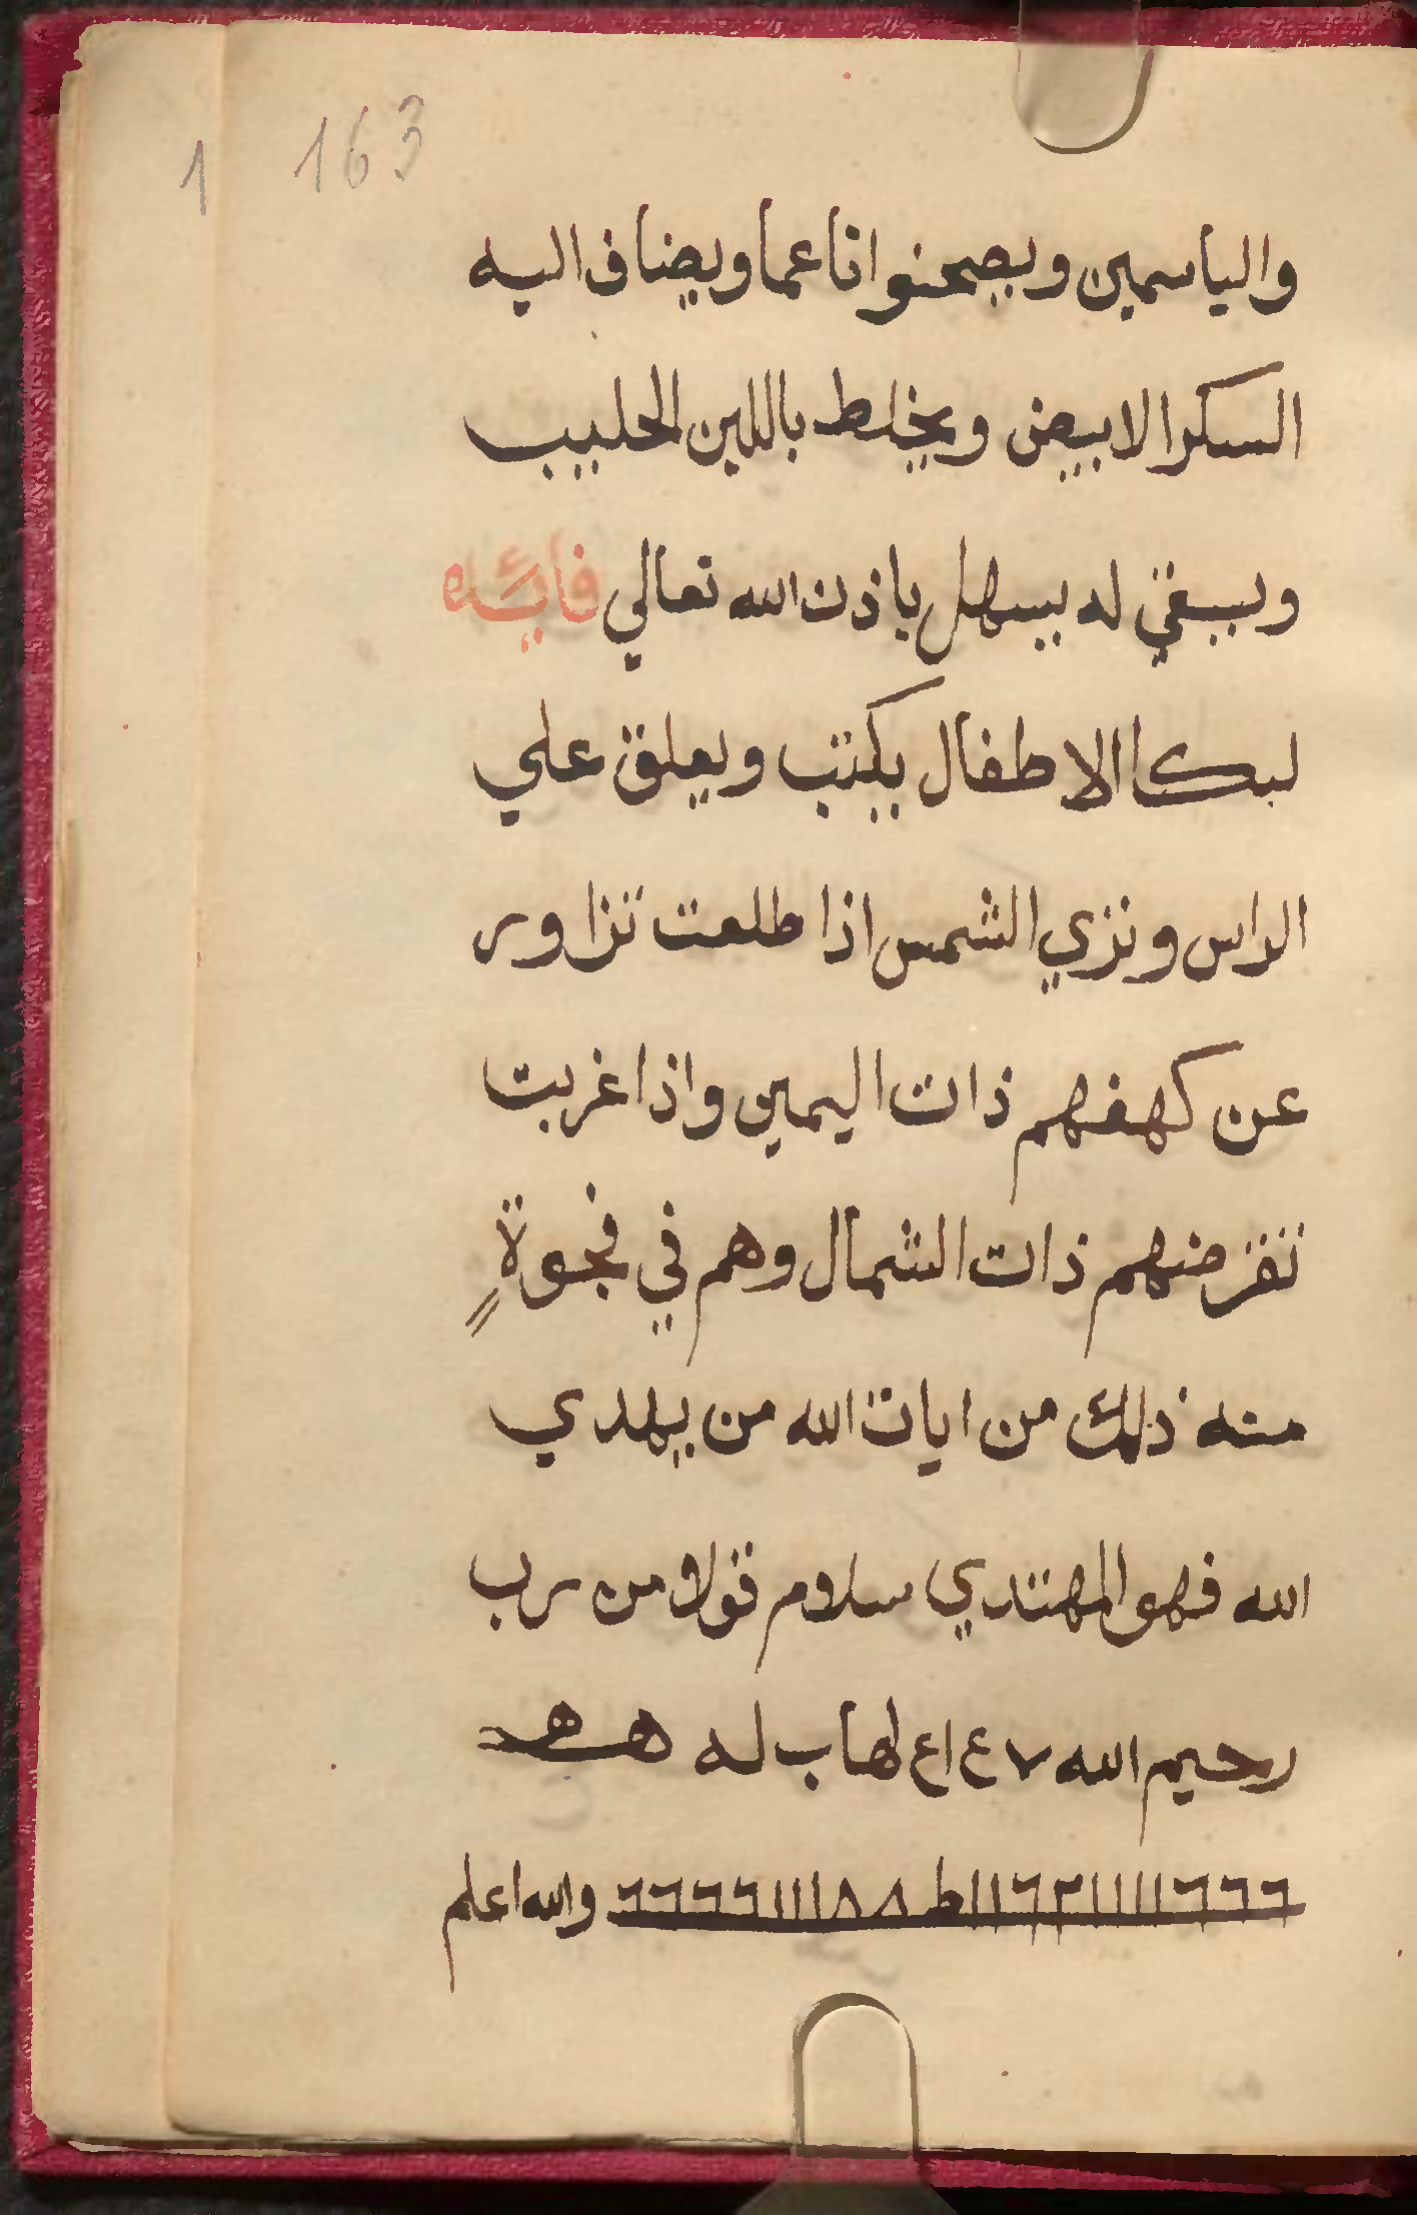 1 163
والياسمين ويصحنوا ناعما ويضاف اليه
السكر الابيض ويخلط باللبن الحليب
ويسقي له يسهل باذن الله تعالي فايده
لبكا الاطفال يكتب ويعلق علي
الراس وتري الشمس اذا طلعت تزاور
عن كهفهم ذات اليمين واذا غربت
تقرضهم ذات الشمال وهم في فجوةٍ
منه ذلك من ايات الله من يهدي
الله فهو المهتدي سلام قولا من رب
رحيم الله ٧ ع اع لهاب له
٦٦٦١١١١٢٦١١١ط٨٨١١١٦٦٦٦ والله اعلم